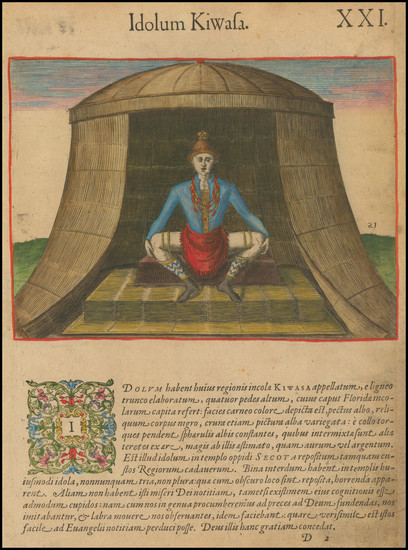 Idolum Kiwaſa.
XXI.
21
I
DOLVM habent huius regionis incolæ KIWASA appellatum, è ligneo
trunco elaboratum, quatuor pedes altum, cuius caput Floridæ inco-
larum capita refert: facies carneo colore depicta eſt, pectus albo, reli-
quum corpus nigro, crura etiam pictura alba variegata: è collo tor-
ques pendent ſphærulis albis constantes, quibus intermixtæ ſunt aliæ
teretes ex ære, magis ab illis æstimato, quam aurum vel argentum.
Est illud idolum in templo oppidi SECOTA repoſitum tamquam cu-
stos Regiorum cadauerum. Bina interdum habent in templis hu-
iuſmodi idola, nonnunquam tria, non plura: quæ cum obſcuro loco ſint repoſita, horrenda appa-
rent. Aliam non habent iſti miſeri Dei notitiam, tametſi exiſtimem eius cognitionis eſſe
admodum cupidos: nam cum nos in genua procumberemus ad preces ad Deum fundendas, nos
imitabantur, & labra mouere nos obſeruantes, idem faciebant: quare veriſimile eſt iſtos
facile ad Euangelij notitiam perduci poſſe. Deus illis hanc gratiam concedat.
D 2